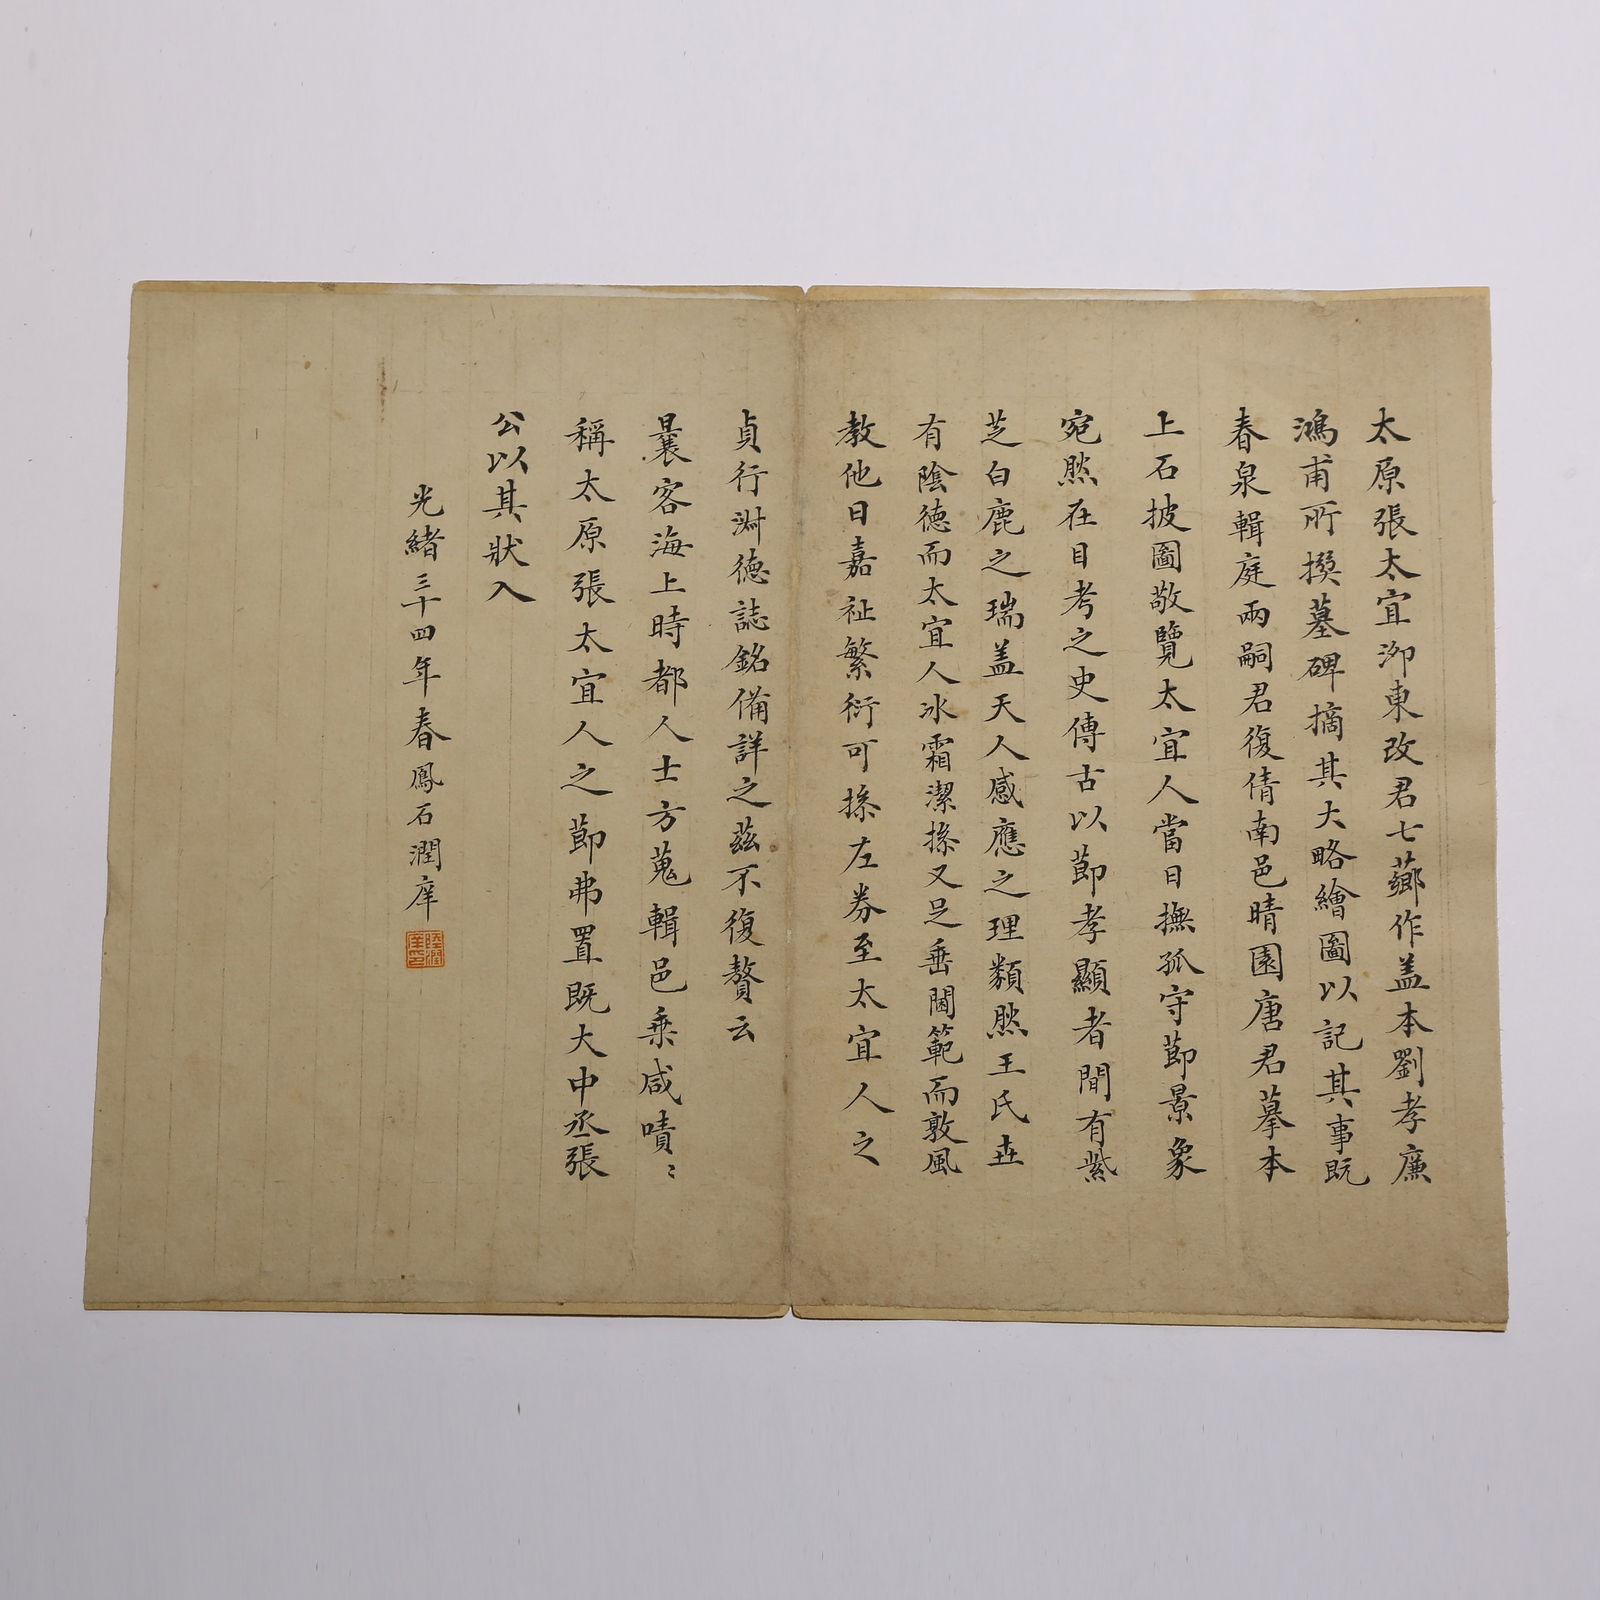 太原張太宜泖東改君七薌作盖本劉孝廉
鴻甫所撰墓碑摘其大略繪圖以記其事既
春泉輯庭兩嗣君復倩南邑晴園唐君摹本
上石披圖敬覽太宜人當日撫孤守莭景象
宛然在目考之史傳古以莭孝顯者間有紫
芝白鹿之瑞盖天人感應之理類然王氏世
有陰德而太宜人冰霜潔操又足垂閫範而敦風
教他日嘉祉繁衍可操左券至太宜人之
貞行淑德誌銘備詳之茲不復贅云
曩客海上時都人士方蒐輯邑乗咸嘖〻
稱太原張太宜人之莭弗置既大中丞張
公以其狀入
光緒三十四年春鳳石潤庠
陸潤庠印